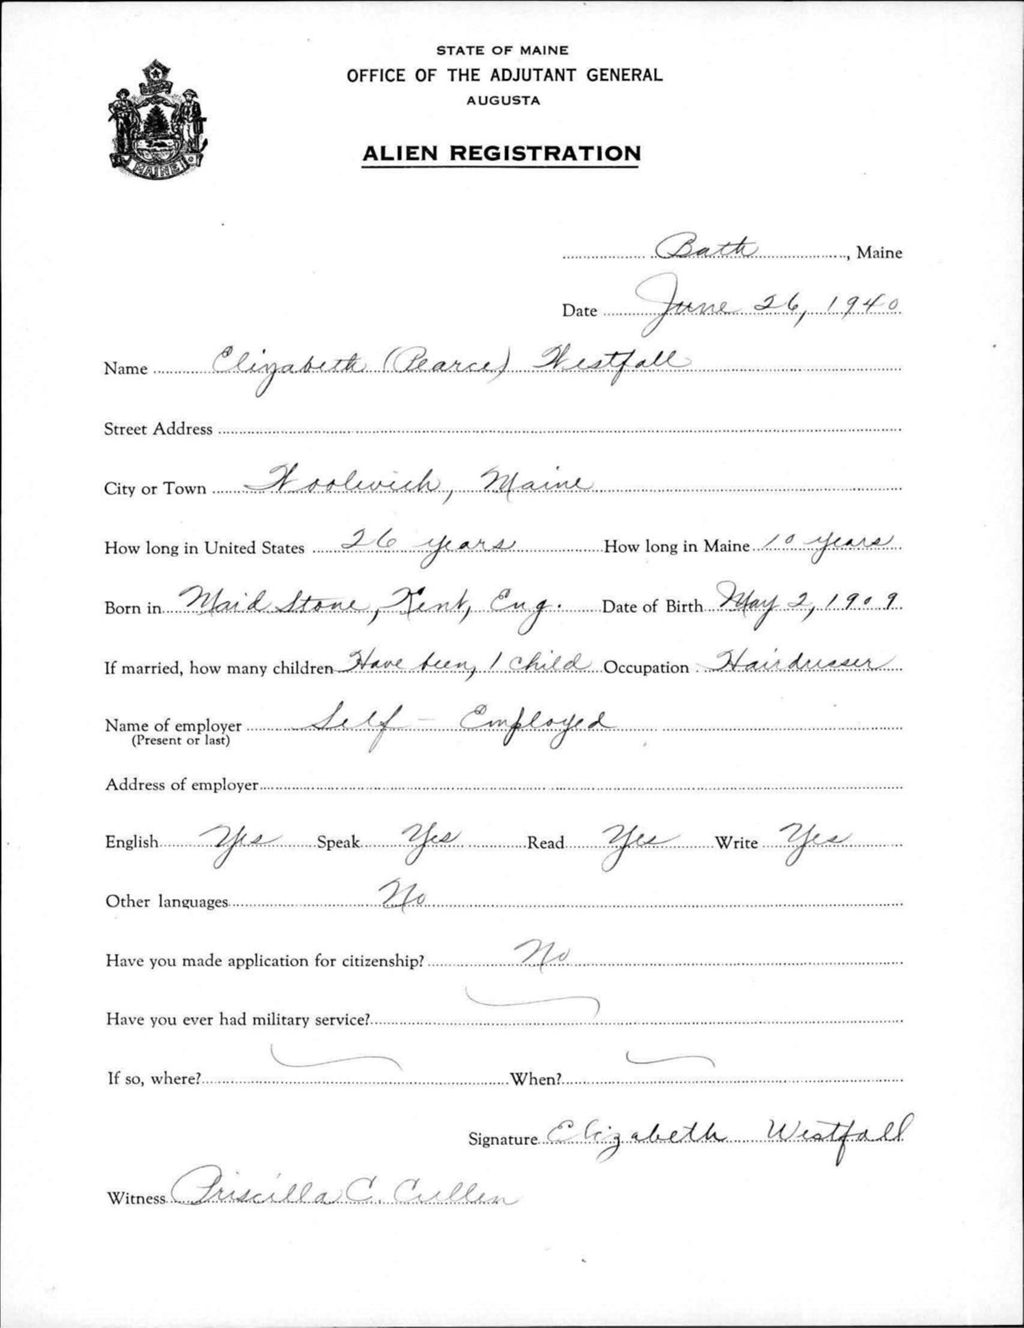 STATE OF MAINE
OFFICE OF THE ADJUTANT GENERAL
AUGUSTA
ALIEN REGISTRATION
MAINE
Bath, Maine
Date June 26, 1940
Name Elizabeth (Pearce) Westfall
Street Address
City or Town Woolwich, Maine
How long in United States 26 years How long in Maine 10 years
Born in Maid Stone, Kent, Eng. Date of Birth May 2, 1909
If married, how many children Have been, 1 child Occupation Hairdresser
Name of employer Self - Employed
(Present or last)
Address of employer
English Yes Speak Yes Read Yes Write Yes
Other languages No
Have you made application for citizenship? No
Have you ever had military service?
If so, where? When?
Signature Elizabeth Westfall
Witness Priscilla C. Cullen